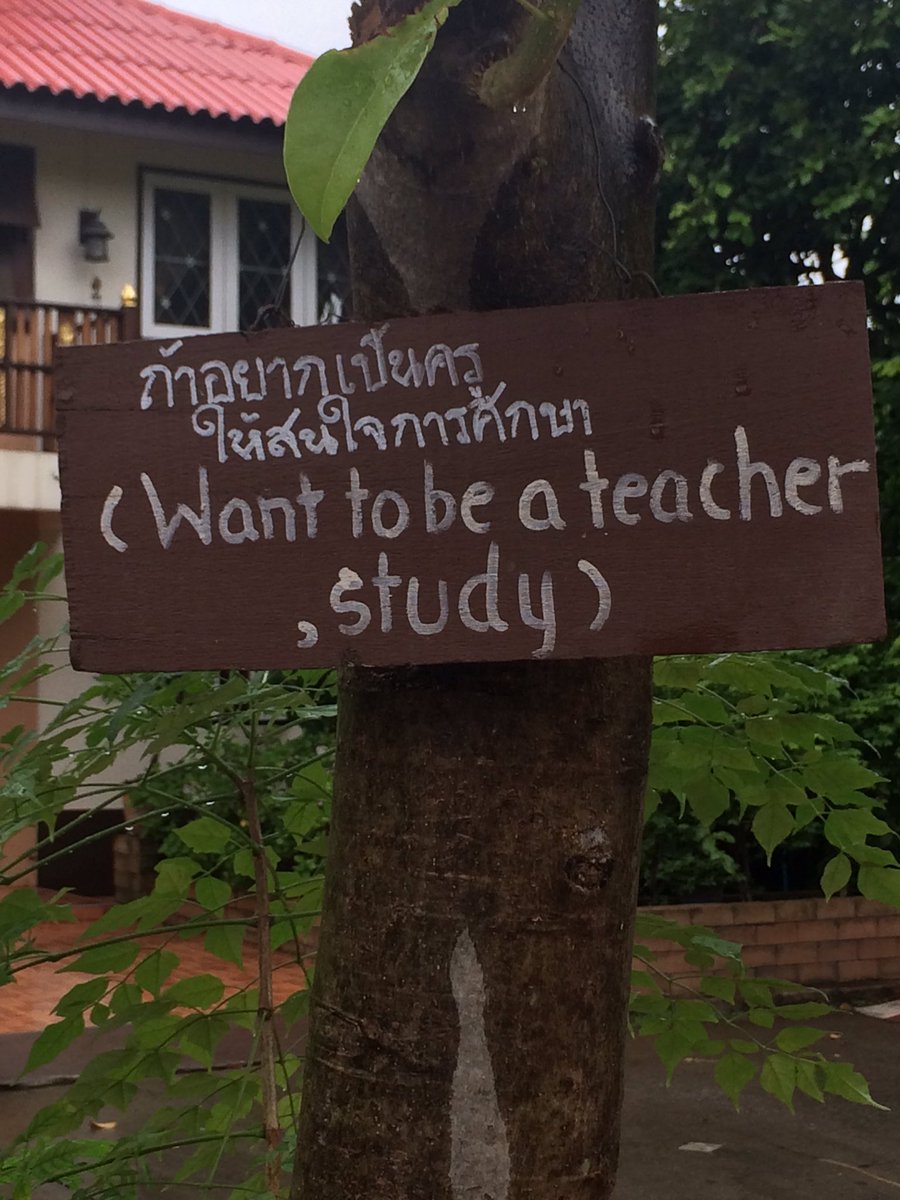 ถ้าอยากเป็นครู
ให้สนใจการศึกษา
(Want to be a teacher
,study)